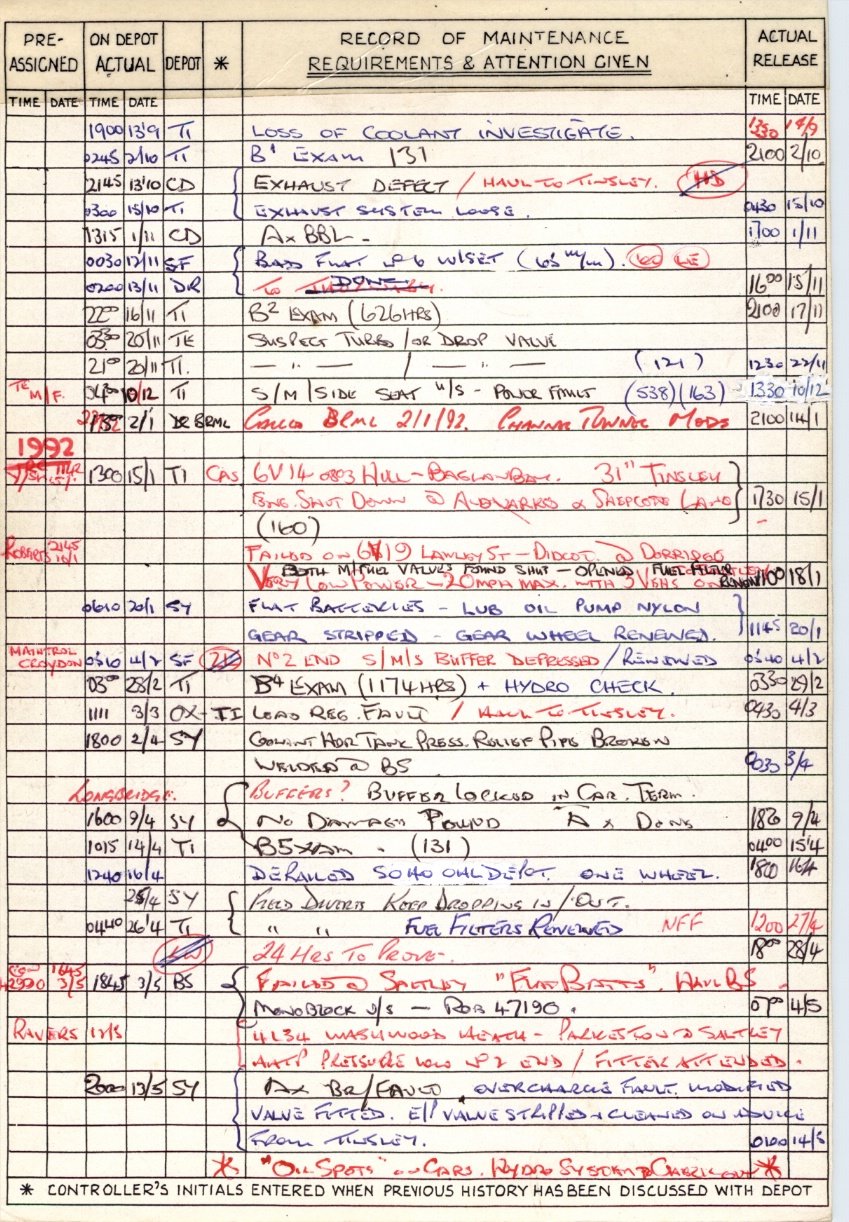 PRE- ON DEPOT RECORD OF MAINTENANCE ACTUAL
ASSIGNED ACTUAL DEPOT * REQUIREMENTS & ATTENTION GIVEN RELEASE
TIME DATE TIME DATE TIME DATE
1900 13'9 TI LOSS OF COOLANT INVESTIGATE. 1330 14/9
0245 2/10 TI B' EXAM 131 2100 2/10
2145 13'10 CD EXHAUST DEFECT / HAUL TO TINSLEY.
0300 15/10 TI EXHAUST SYSTEM LOOSE. 0430 15/10
1315 1/11 CD A x BBL - 1700 1/11
0030 12/11 SF BAD FLAT Nº 6 W/SET (65 m/m).
0200 13/11 DR TO DONE 1600 15/11
2200 16/11 TI B2 EXAM (626 HRS) 2100 17/11
20/11 TE SUSPECT TURBO / OR DROP VALVE
2100 20/11 TI. — " — / — " — (121) 1230 22/11
TE M/F. 10/12 TI S/M/SIDE SEAT U/S - POWER FAULT (538)(163) 1330 10/12
2/1 DR BRML CALLED BRML 2/1/92. CHANNEL TUNNEL MODS 2100 14/1
1992
1300 15/1 TI CAS 6V14 0803 HULL - BAGLAN BAY. 31" TINSLEY
ENG. SHUT DOWN @ ALDWARKE & SHEPCOTE LANE 1730 15/1
(160)
ROBERTS 2145 FAILED ON 6V19 LAWLEY ST - DIDCOT. @ DORRIDGE
BOTH M/FUEL VALVES FOUND SHUT - OPENED FUEL FILTER
VERY LOW POWER - 20MPH MAX. WITH 3 VEHS ON RENEW 1100 18/1
0610 20/1 SY FLAT BATTERIES - LUB OIL PUMP NYLON
GEAR STRIPPED - GEAR WHEEL RENEWED. 1145 20/1
MAINTROL
CROYDON 0510 4/2 SF Nº2 END S/M/S BUFFER DEPRESSED / RENEWED 0540 4/2
0300 28/2 TI B4 EXAM (1174 HRS) + HYDRO CHECK. 0330 29/2
1111 3/3 OX-TI LOAD REG. FAULT / HAUL TO TINSLEY. 0430 4/3
1800 2/4 SY COOLANT HDR TANK PRESS. RELIEF PIPE BROKEN
WELDED @ BS. 0030 3/4
LONGBRIDGE. BUFFERS? BUFFER LOCKED IN CAR. TERM.
1600 9/4 SY NO DAMAGE FOUND A x DONE 1820 9/4
1015 14/4 TI B EXAM. (131) 0400 15'4
1240 16/4 DERAILED SOHO OHL DEPOT. ONE WHEEL. 1800 16/4
25/4 SY FIELD DIVERTS KEEP DROPPING IN / OUT.
0440 26'4 TI " " FUEL FILTERS RENEWED NFF 1200 27/4
24 HRS TO PROVE. 1800 28/4
1845 3/5 1845 3/5 BS FAILED @ SALTLEY "FLAT BATTS". HAUL BS.
MONOBLOCK U/S — ROB 47190. 0700 4/5
RAVERS 13/5 4L34 WASHWOOD HEATH - PARKESTON @ SALTLEY
PRESSURE LOW Nº 2 END / FITTER ATTENDED.
2000 13/5 SY A x BR/FAULT OVERCHARGE FAULT. MODIFIED
VALVE FITTED. E/P VALVE STRIPPED + CLEANED ON ADVICE
FROM TINSLEY. 0100 14/5
* "OIL SPOTS" ON CARS. HYDRO SYSTEM *
* CONTROLLER'S INITIALS ENTERED WHEN PREVIOUS HISTORY HAS BEEN DISCUSSED WITH DEPOT